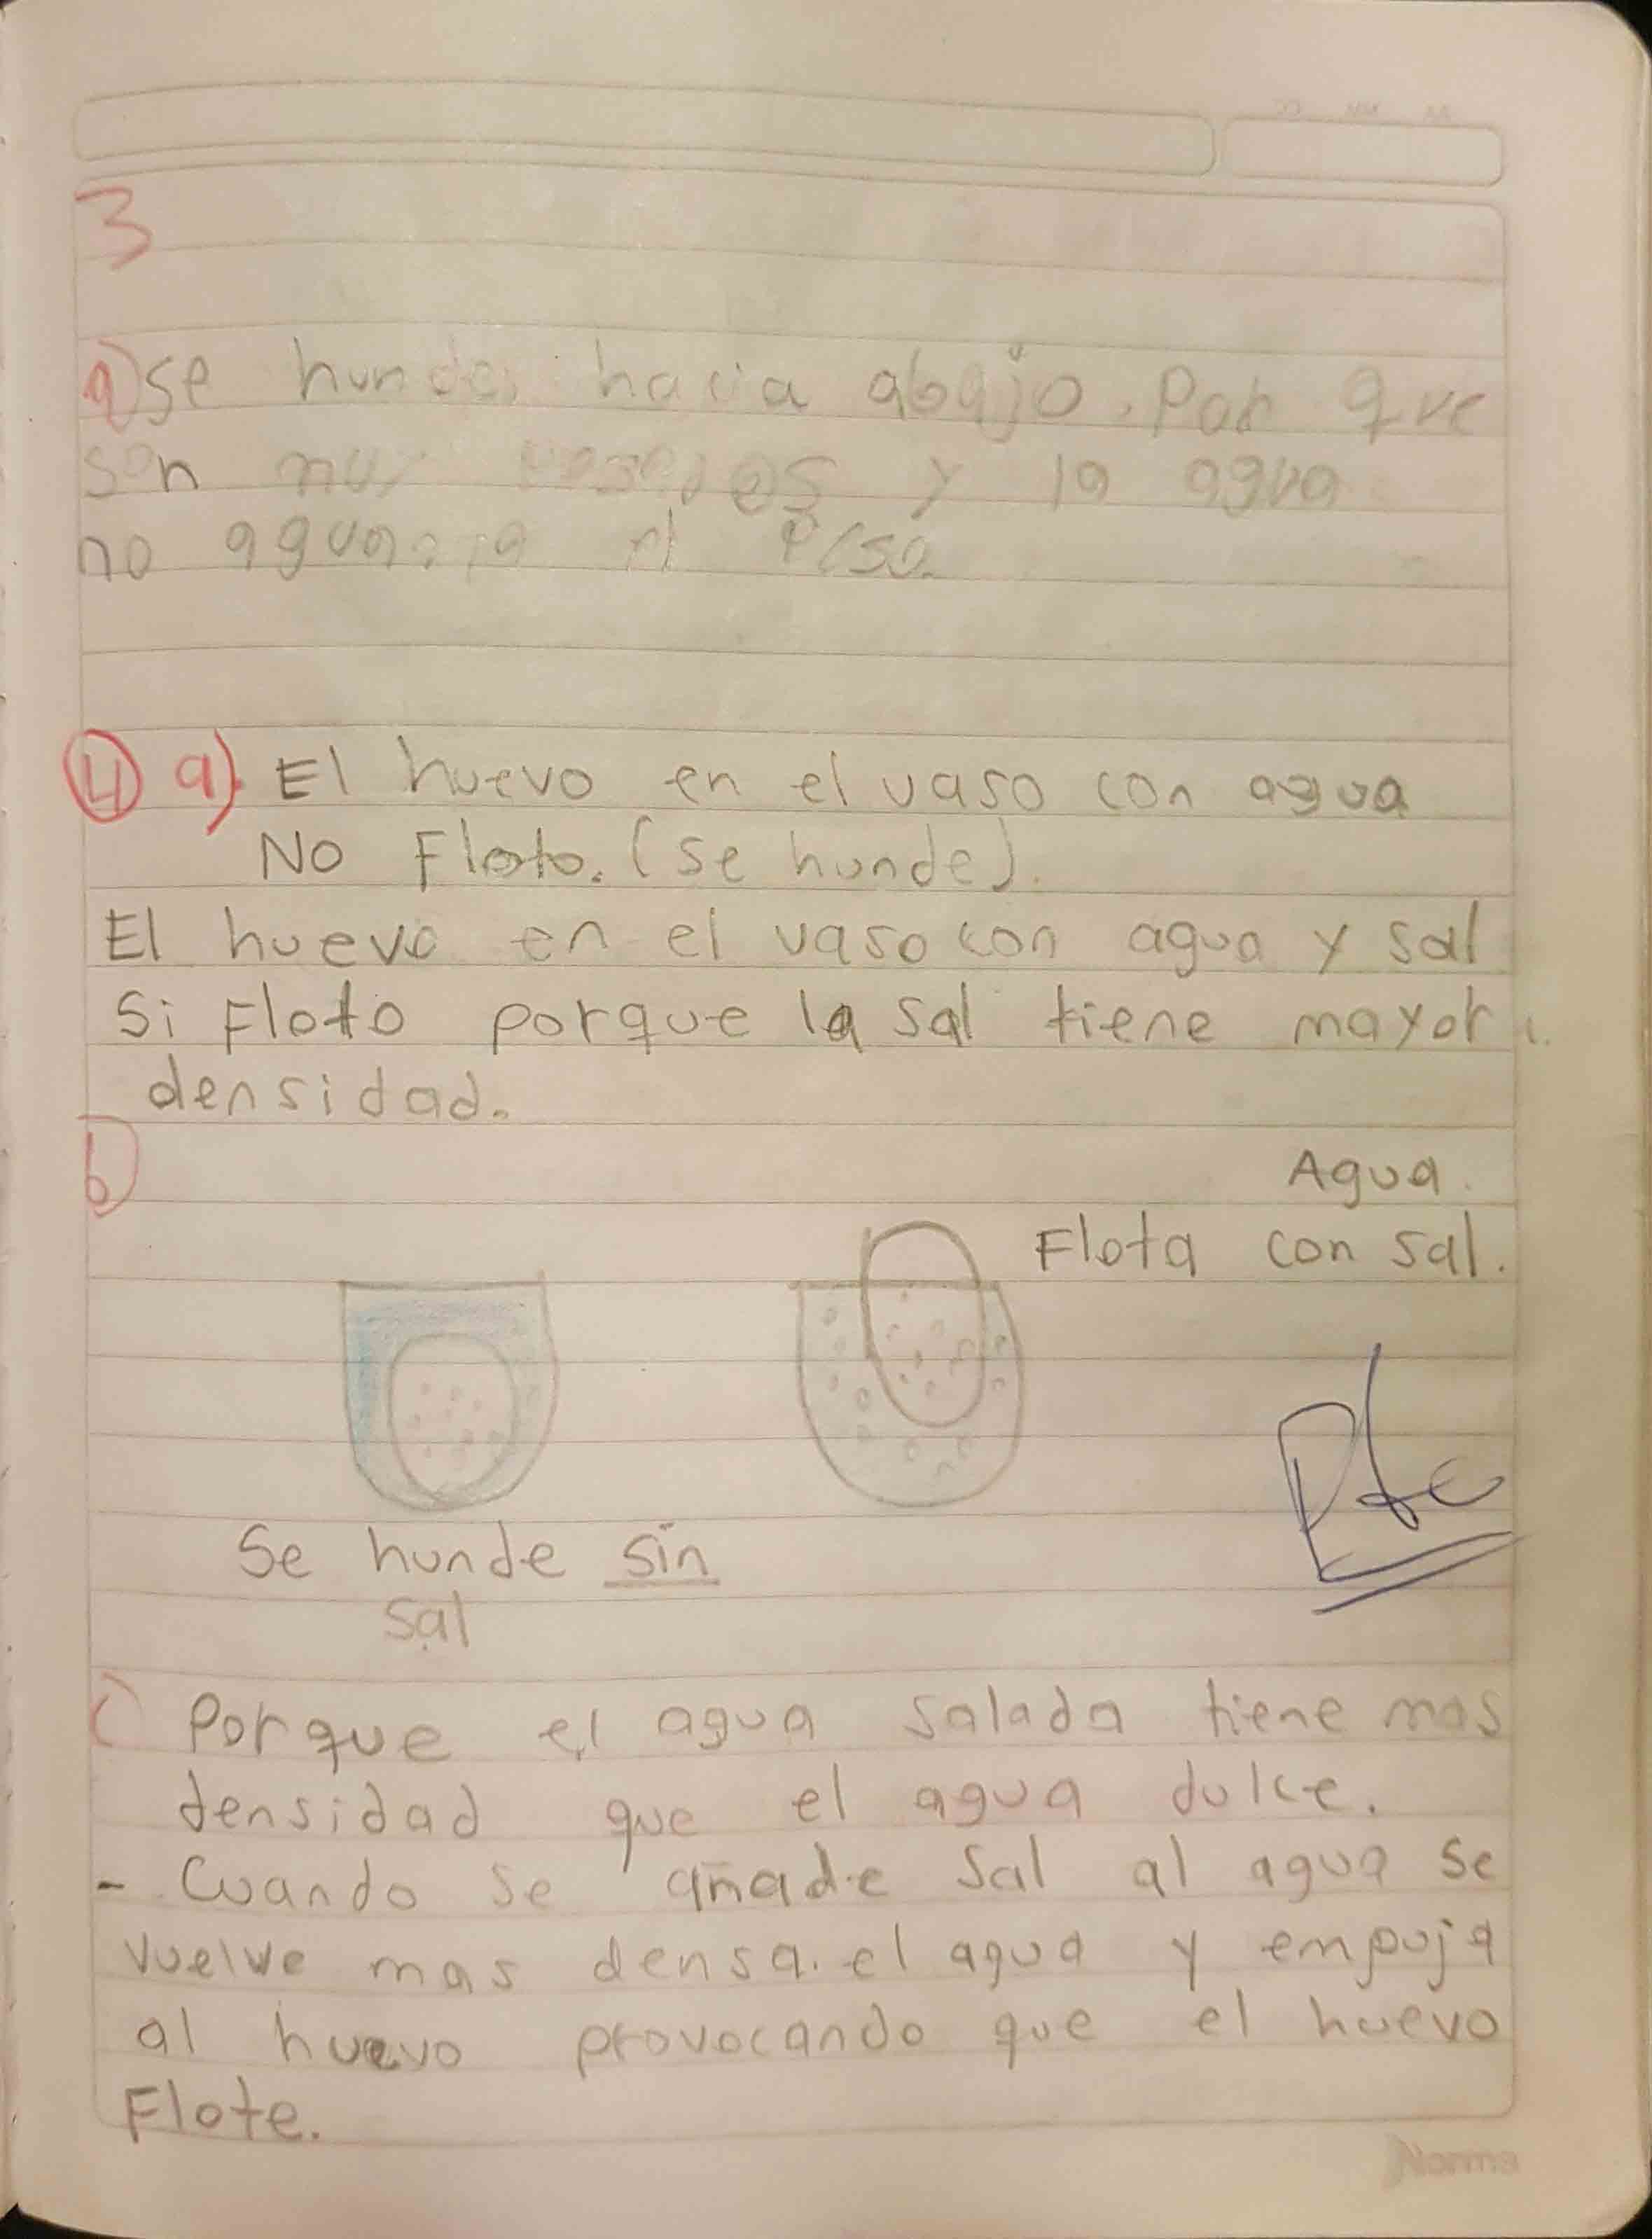 3
a) se hunde hacia abajo. Por que
son muy pesados y la agua
no aguanta el peso.
4 a) El huevo en el vaso con agua
NO Floto. (se hunde).
El huevo en el vaso con agua y sal
Si Floto porque la sal tiene mayor
densidad.
b)
Agua.
Flota con sal.
Se hunde sin
sal
c) Porque el agua salada tiene mas
densidad que el agua dulce.
- Cuando se añade sal al agua se
vuelve mas densa. el agua y empuja
al huevo provocando que el huevo
Flote.
Norma